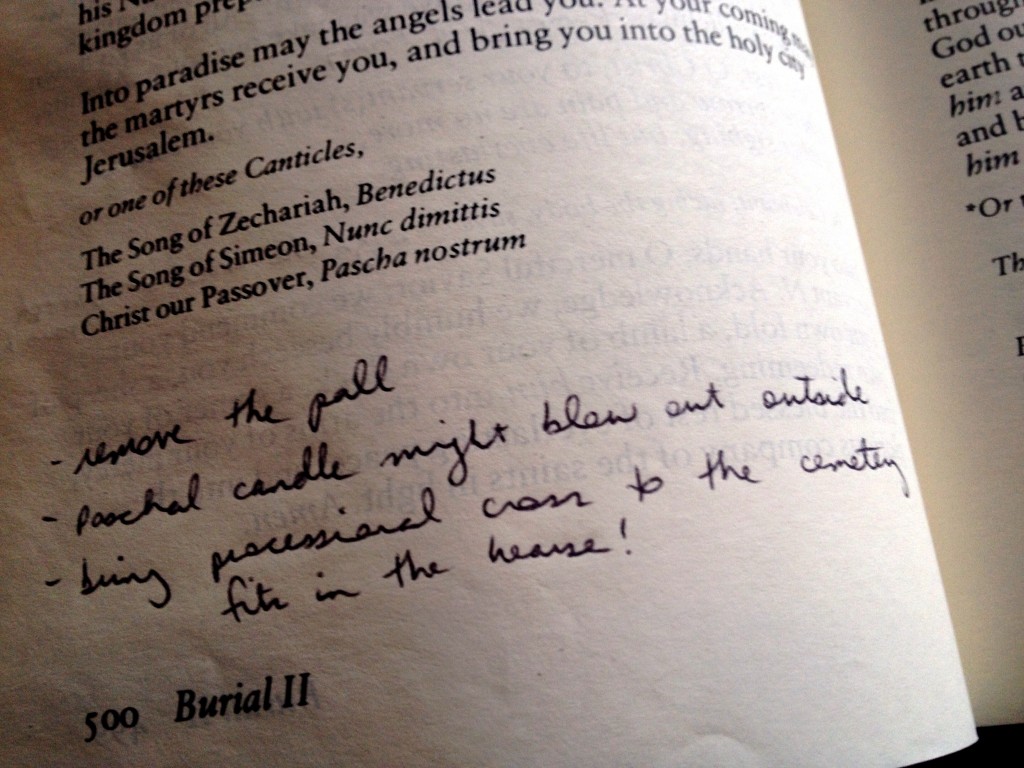 his
kingdom
Into paradise may the angels lead you. At your coming may
the martyrs receive you, and bring you into the holy city
Jerusalem.
or one of these Canticles,
The Song of Zechariah, Benedictus
The Song of Simeon, Nunc dimittis
Christ our Passover, Pascha nostrum
- remove the pall
- paschal candle might blow out outside
- bring processional cross to the cemetery
fits in the hearse!
500 Burial II
through
God
earth
him a
and b
him
*Or